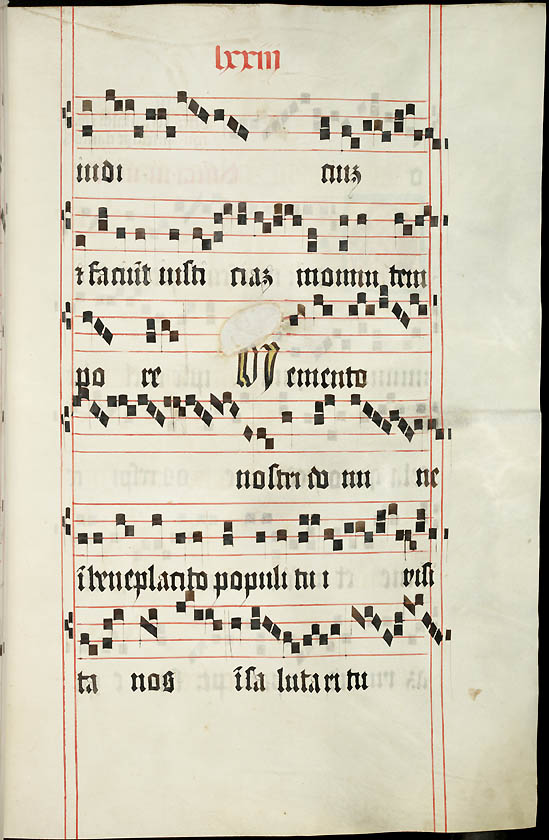 lxxiii
iudi ciuz
⁊ faciu̅t iusti ciaz in omni tem
po re Memento
nostri do mi ne
i̅ beneplacito populi tu i visi
ta nos i̅ sa lutari tu